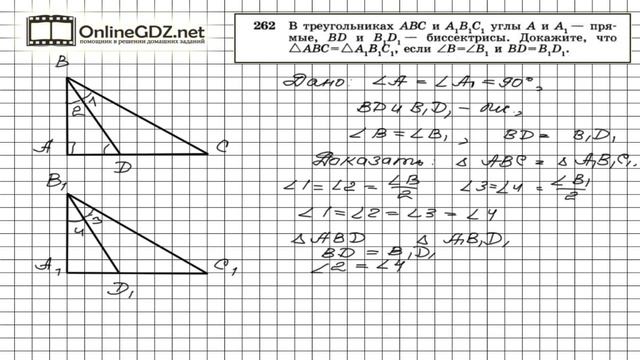 OnlineGDZ.net
помощник в решении домашних заданий
262 В треугольниках ABC и A₁B₁C₁ углы A и A₁ — пря-
мые, BD и B₁D₁ — биссектрисы. Докажите, что
△ABC=△A₁B₁C₁, если ∠B=∠B₁ и BD=B₁D₁.
B
2 1
A D C
B₁
4 3
A₁ D₁ C₁
Дано: ∠A = ∠A₁ = 90°,
BD и B₁D₁ – бис,
∠B = ∠B₁, BD = B₁D₁
Доказать: △ ABC = △ A₁B₁C₁.
∠1 = ∠2 = ∠B/2 ∠3=∠4 = ∠B₁/2
∠1 = ∠2 = ∠3 = ∠4
△ ABD △ A₁B₁D₁
BD = B₁D₁
∠2 = ∠4